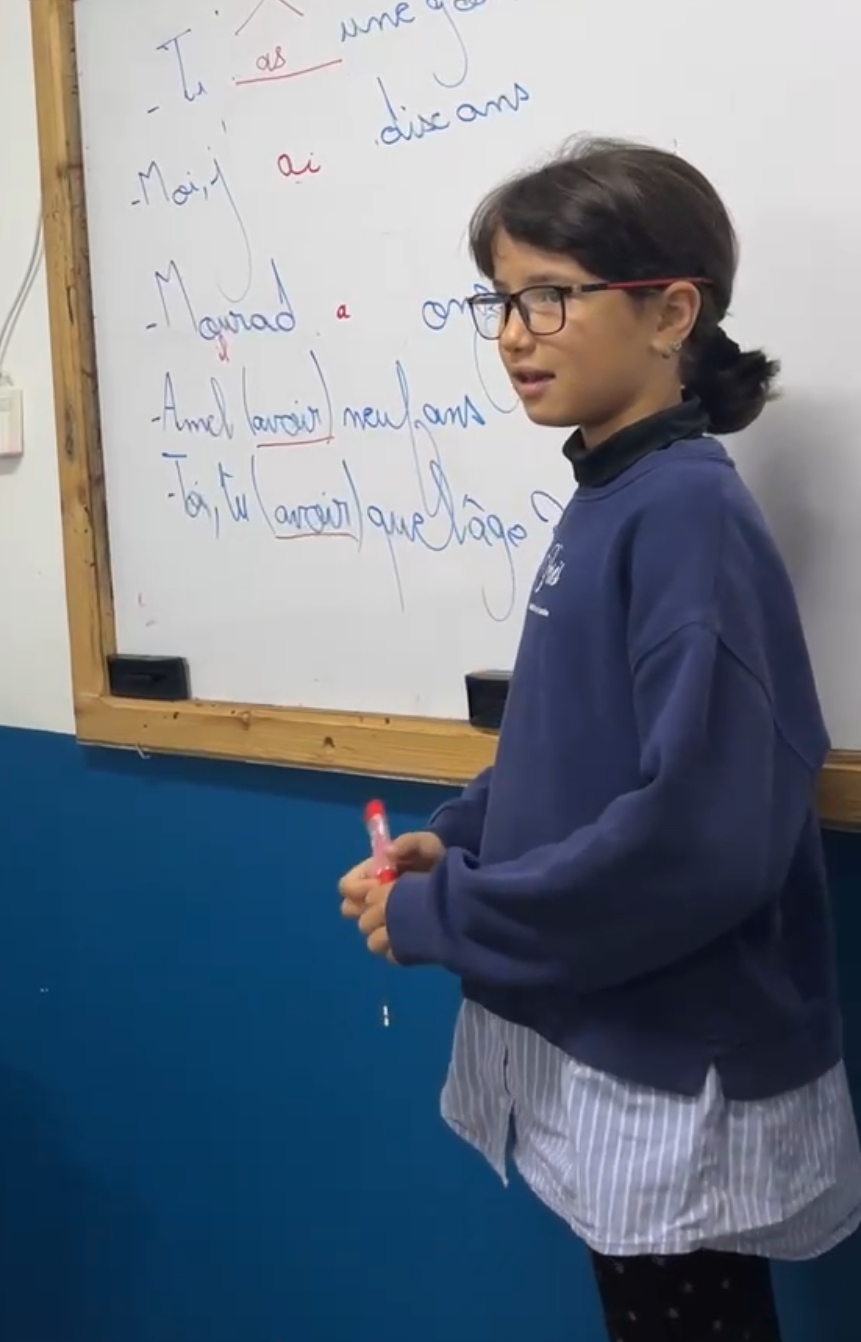 - Tu as une
- Moi, j' ai dix ans
- Mourad a
- Amel (avoir) neuf ans
- Toi, tu (avoir) quel âge ?